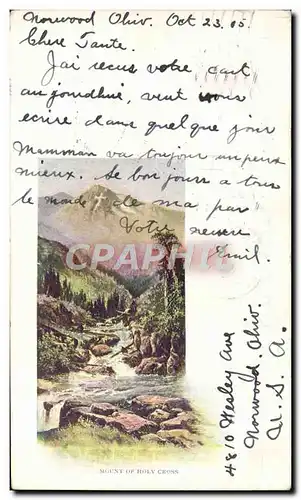 Norwood Ohio. Oct 23. 05.
Chere Tante.
J'ai recus votre cart
au jourdhui, veut vous
ecrire dans quelque jour
Mamman va toujour un peux
mieux. Le bon jours a tous
le monde de ma par
Votre neveu
Emil.
4810 Wesley Ave
Norwood. Ohio.
U. S. A.
MOUNT OF HOLY CROSS